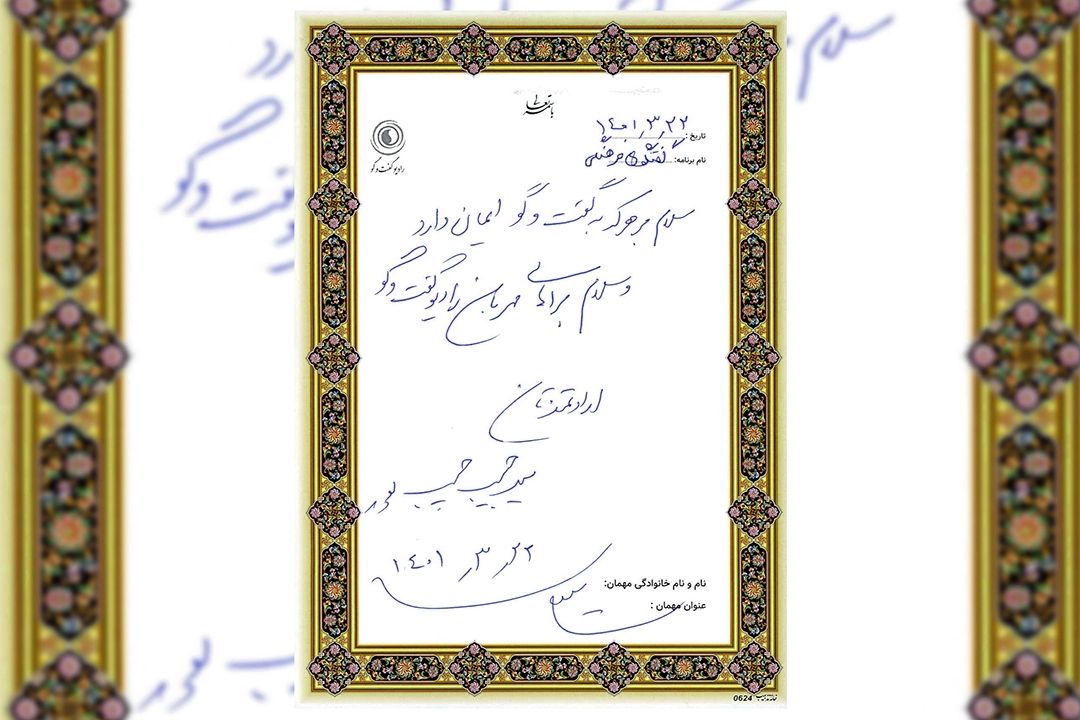 باسمه تعالی
تاریخ: ۱۴۰۱٫۳٫۲۲
نام برنامه: گفتگوی فرهنگی
رادیو گفت و گو
سلام بر هر که به گفت و گو ایمان دارد
و سلام بر اهالی مهربان رادیو گفت و گو
ارادتمندتان
سید حبیب حبیب پور
۱۴۰۱٫۳٫۲۲
نام و نام خانوادگی مهمان:
عنوان مهمان :
0624